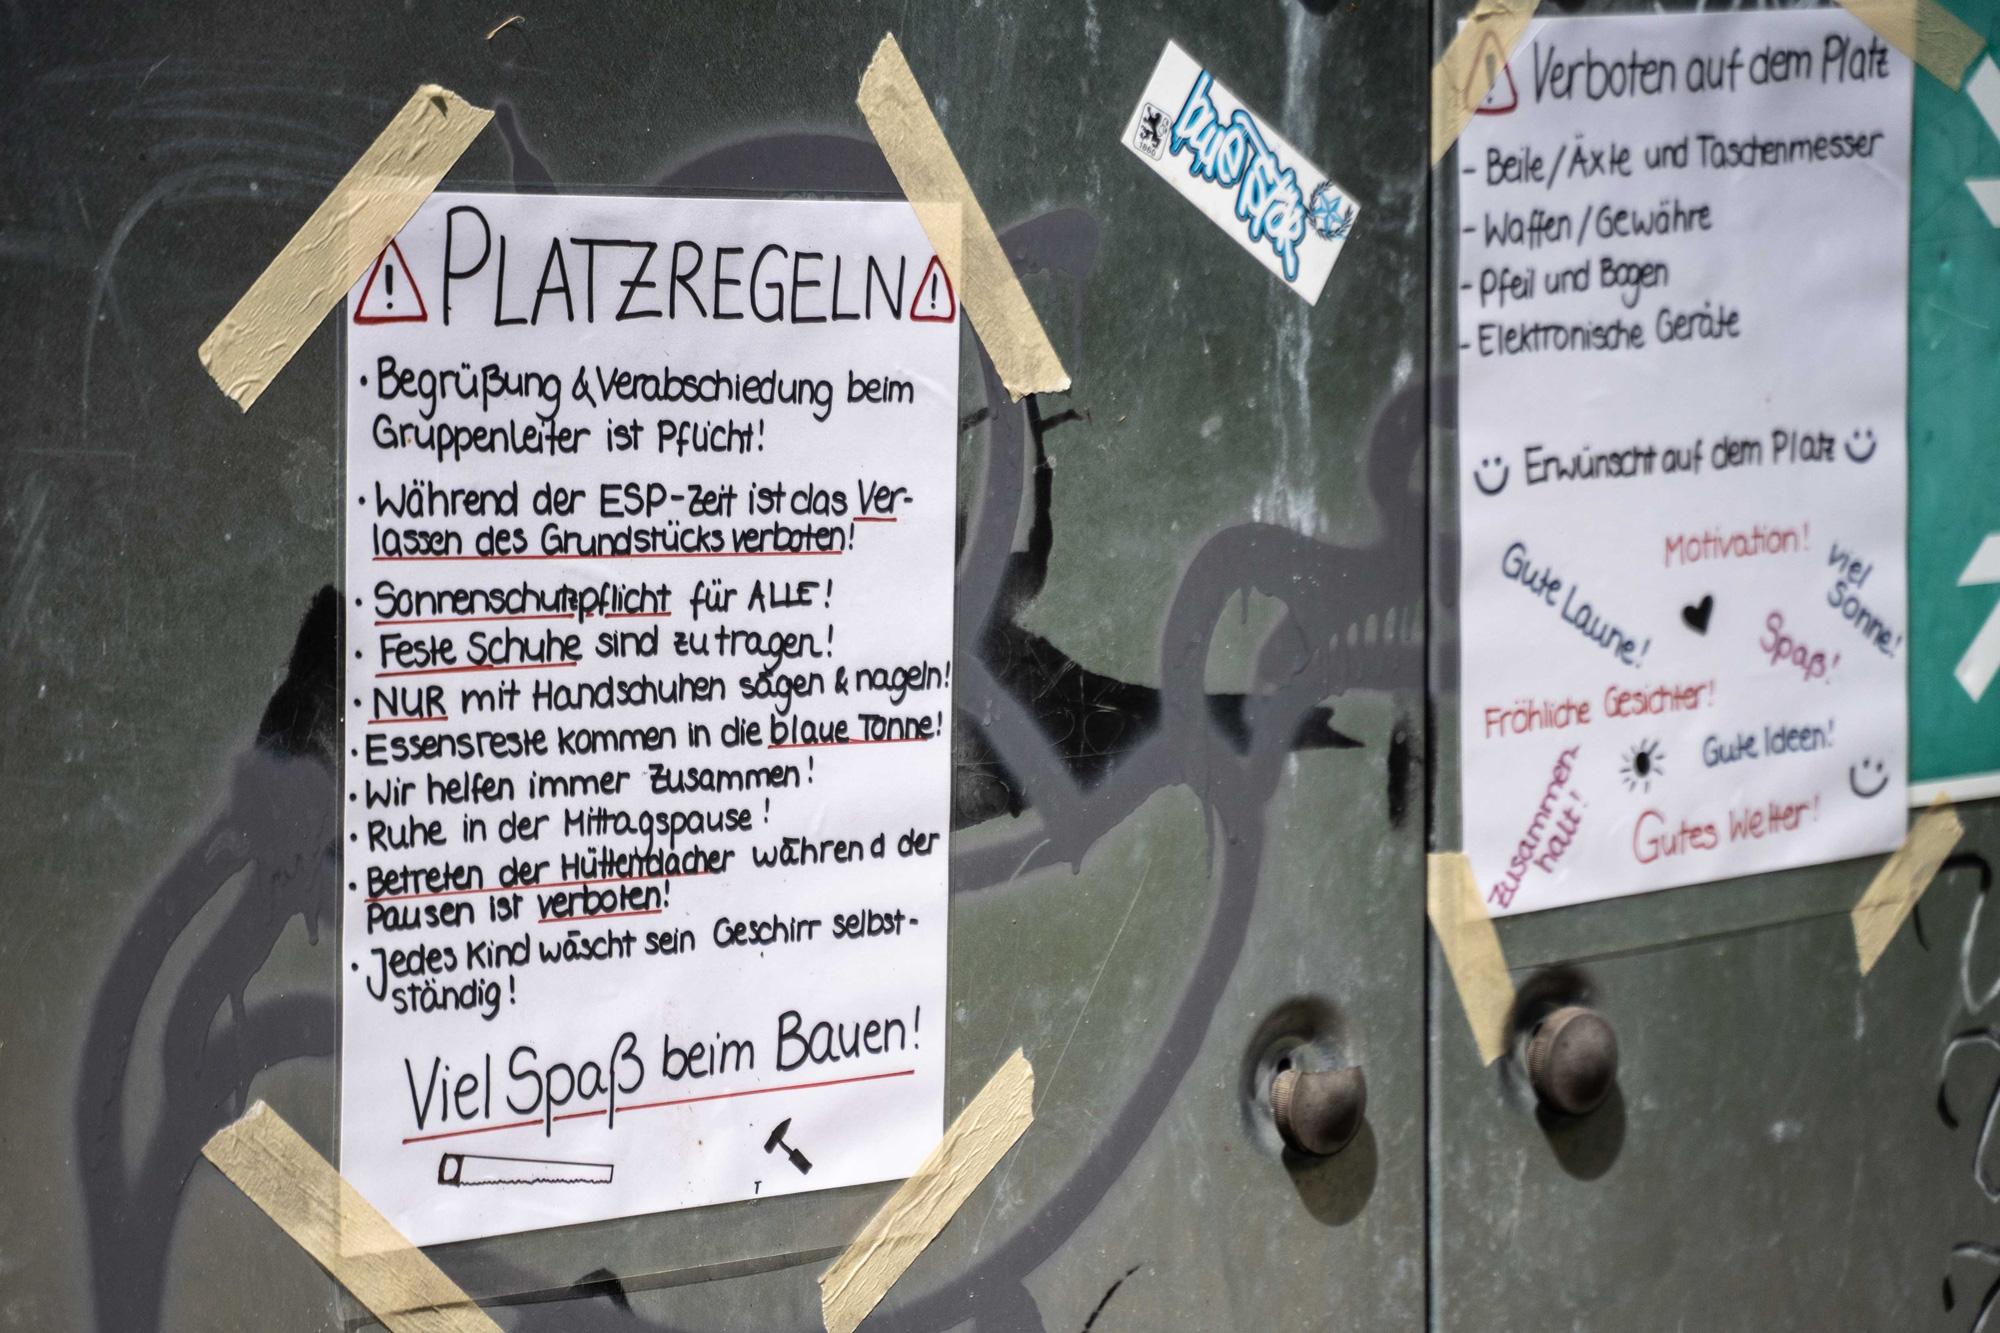 PLATZREGELN
• Begrüßung & Verabschiedung beim
Gruppenleiter ist Pflicht!
• Während der ESP-Zeit ist das Ver-
lassen des Grundstücks verboten!
• Sonnenschutzpflicht für ALLE!
• Feste Schuhe sind zu tragen!
• NUR mit Handschuhen sägen & nageln!
• Essensreste kommen in die blaue Tonne!
• Wir helfen immer zusammen!
• Ruhe in der Mittagspause!
• Betreten der Hüttendächer während der
Pausen ist verboten!
• Jedes Kind wäscht sein Geschirr selbst-
ständig!
Viel Spaß beim Bauen!
1860
Verboten auf dem Platz
- Beile/Äxte und Taschenmesser
- Waffen/Gewähre
- Pfeil und Bogen
- Elektronische Geräte
Erwünscht auf dem Platz
Motivation!
Gute Laune!
Viel
Sonne!
Spaß!
Fröhliche Gesichter!
Gute Ideen!
Zusammen
halt!
Gutes Wetter!